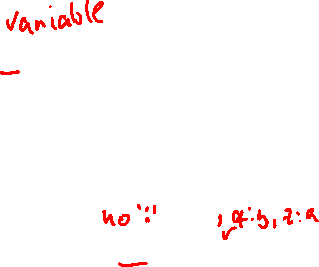 variable
no ':' , a:b, z:a